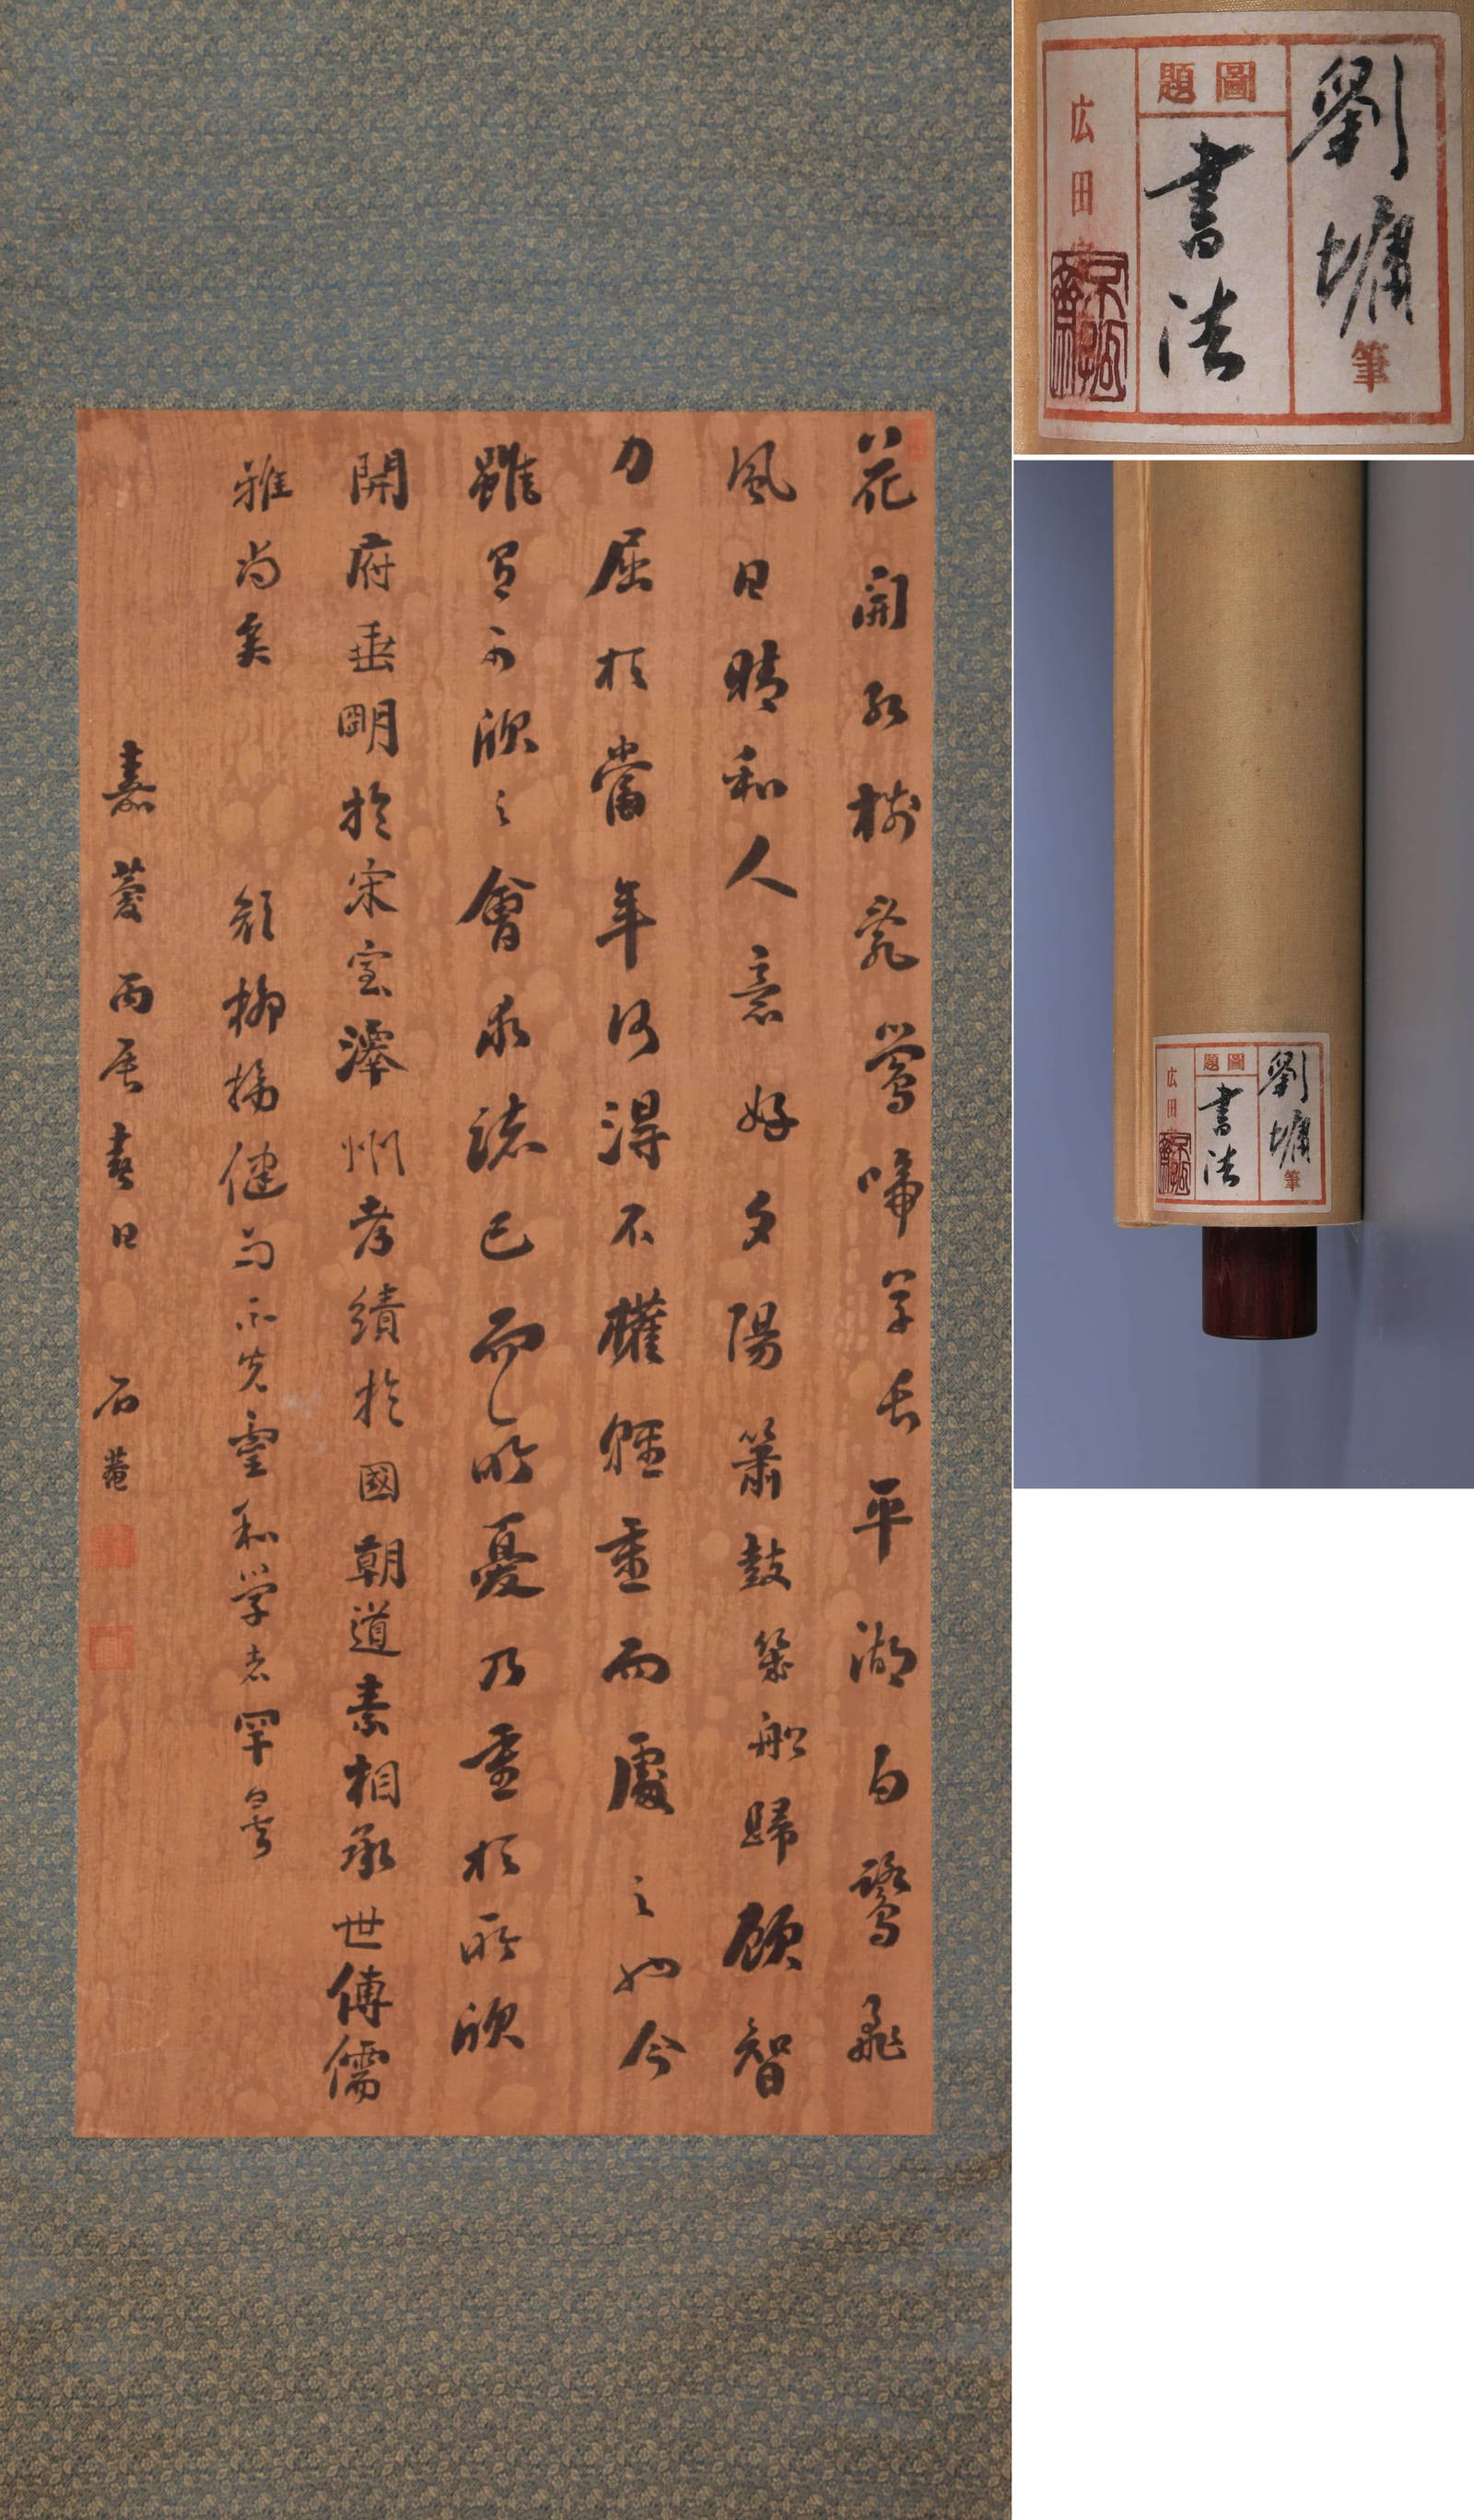 花開紅樹亂鶯啼草長平湖白鷺飛
風日晴和人意好夕陽簫鼓幾船歸顧智
力屈於當年何得不權輕重而處之也今
雖有可欣之會求諸己而所憂乃重於所欣
開府垂明於宋室澤州考績於國朝道素相承世傳儒
雅尚矣 顏柳健而不靈和學者罕
嘉慶丙辰春日 石菴
劉墉筆
圖題
書法
広田
劉墉筆
圖題
書法
広田